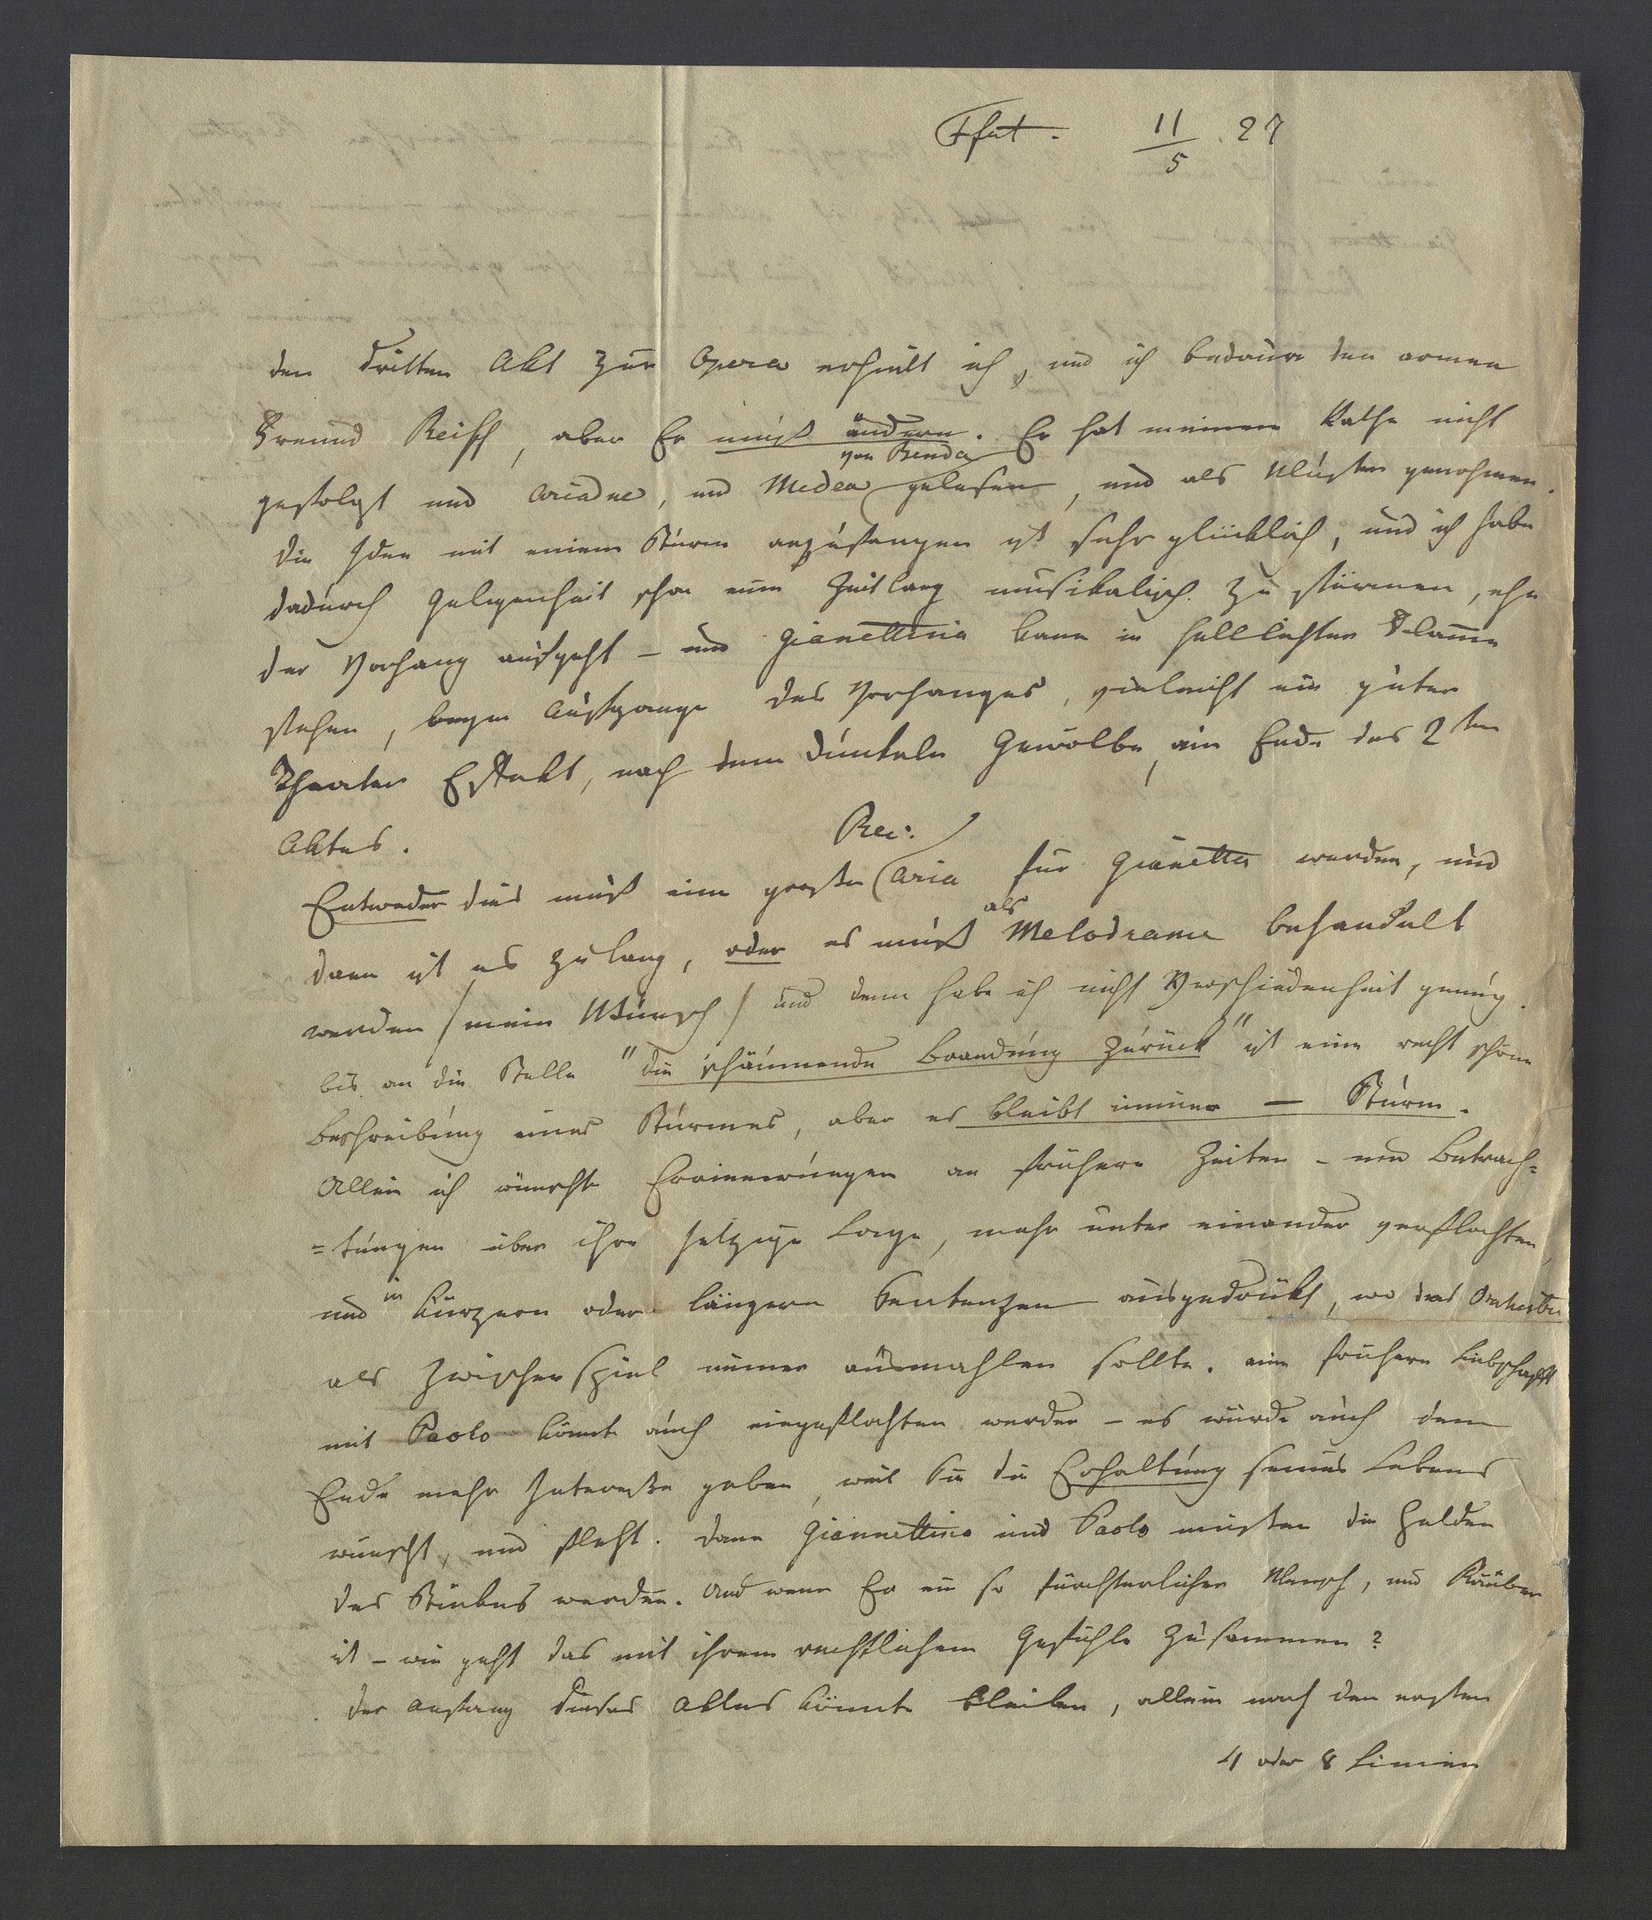 Ffut. 11/5. 27
den dritten Akt zur Opera erhielt ich, und ich bedaure den armen
Freund Reiff, aber Er muß ändern. Er hat meinem Rathe nicht
gefolgt und Ariadne, und Medea von Benda gelesen, und als Muster genohmen.
die Idee mit einem Sturm anzufangen ist sehr glücklich, und ich habe
dadurch Gelegenheit schon eine Zeitlang musikalisch zu stürmen, ehe
der Vorhang aufgeht – und Gianettina kann in helllichter Flamme
stehen, beym Aufgange des Vorhanges, vieleicht ein guter
Theater Effekt, nach dem dunkeln Gewölbe, am Ende des 2ten
Aktes.
Entweder dies muß eine große Rec: Aria für Gianetta werden, und
dann ist es zu lang, oder es muß als Melodrama behandelt
werden / mein Wunsch / und denn habe ich nicht Verschiedenheit genug.
bis an die Stelle "die schäumende Brandung zurück" ist eine recht schöne
Beschreibung eines Sturmes, aber es bleibt immer — Sturm.
Allein ich wünschte Erinnerungen an frühere Zeiten – und Betrach=
=tungen über ihre jetzige Lage, mehr unter einander verflochten,
und in kürzern oder längern Sentenzen ausgedrükt, wo das Orchester
als Zwischenspiel immer ausmahlen sollte. eine frühere Liebschafft
mit Paolo könnte auch eingeflochten werden – es würde auch dem
Ende mehr Intereße geben, weil Sie die Erhaltung seines Lebens
wünscht, und fleht. dann Giannettina und Paolo müßten die Helden
des Stückes werden. Und wenn Er ein so fürchterlicher Mensch, und Räuber
ist – wie geht das mit ihrem rechtlichem Gefühle zusammen?
der Anfang dieses Aktes könnte bleiben, allein nach den ersten
4 oder 8 Linien